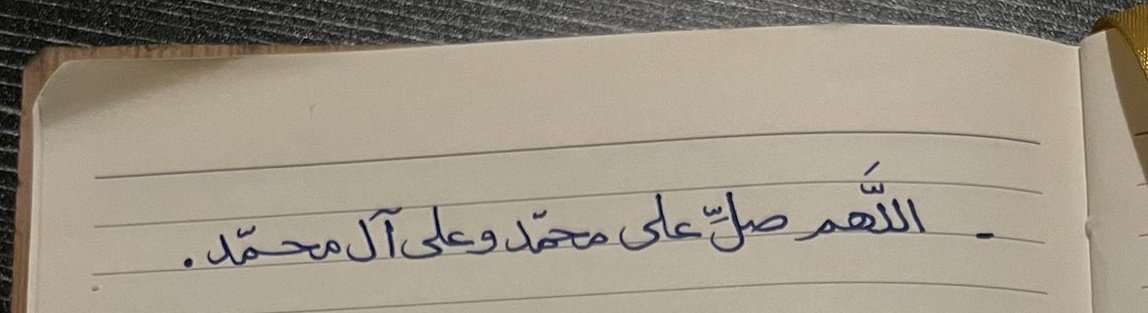 - اللَّهم صلِّ على محمّد وعلى آل محمّد .